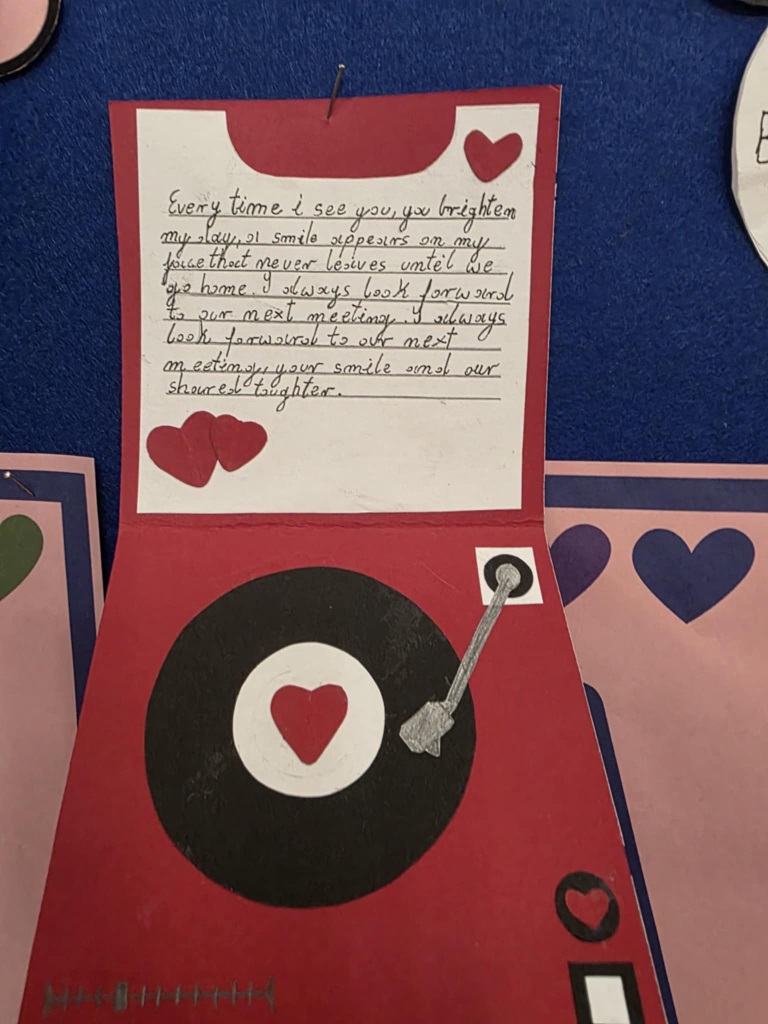 Every time i see you, you brighten
my day, a smile appears on my
face that never leaves until we
go home. I always look forward
to our next meeting. I always
look forward to our next
meeting, your smile and our
shared laughter.